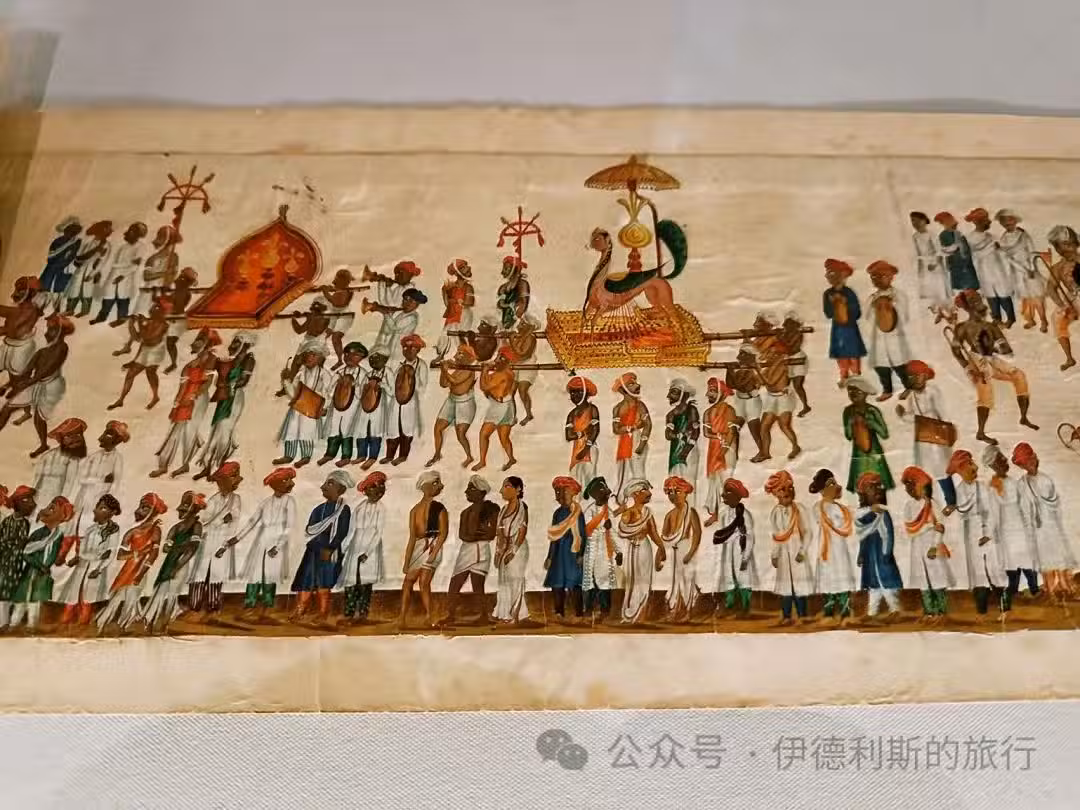 公众号·伊德利斯的旅行